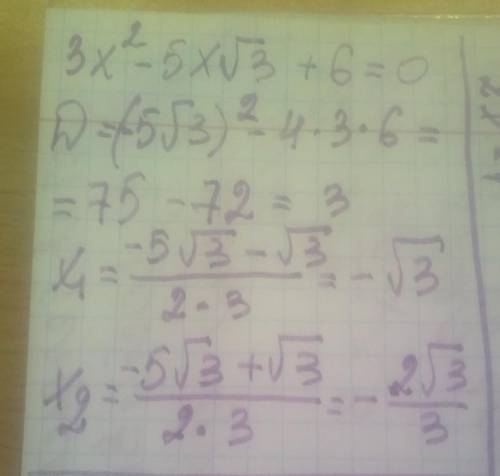 3x² - 5x√3 + 6 = 0
D = (-5√3)² - 4·3·6 =
= 75 - 72 = 3
x₁ = (-5√3 - √3)/(2·3) = -√3
x₂ = (-5√3 + √3)/(2·3) = -2√3/3